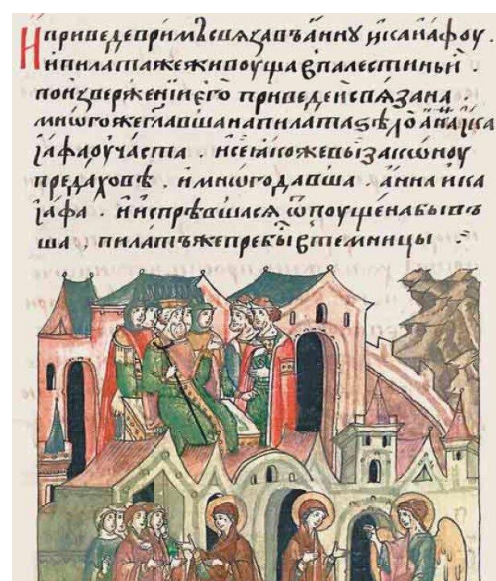 И приведе в рим̾ъ свѧзавъ а҆нну и҆ каиафоу .
и҆ пилата же живоуща в палестиньи .
по и҆зверженїи є҆го приведен свѧзана ,
мнѡго же главша на пилата ѕѣло
ꙗфа оучаста . и҆ се ꙗкоже вы законоу
предаховѣ . и҆ мнѡго давша . а҆нна и ка
їафа . и҆ и҆спрѣвшасѧ ѿпоущена бывъ
ша , пилатъ же пребы в темницы